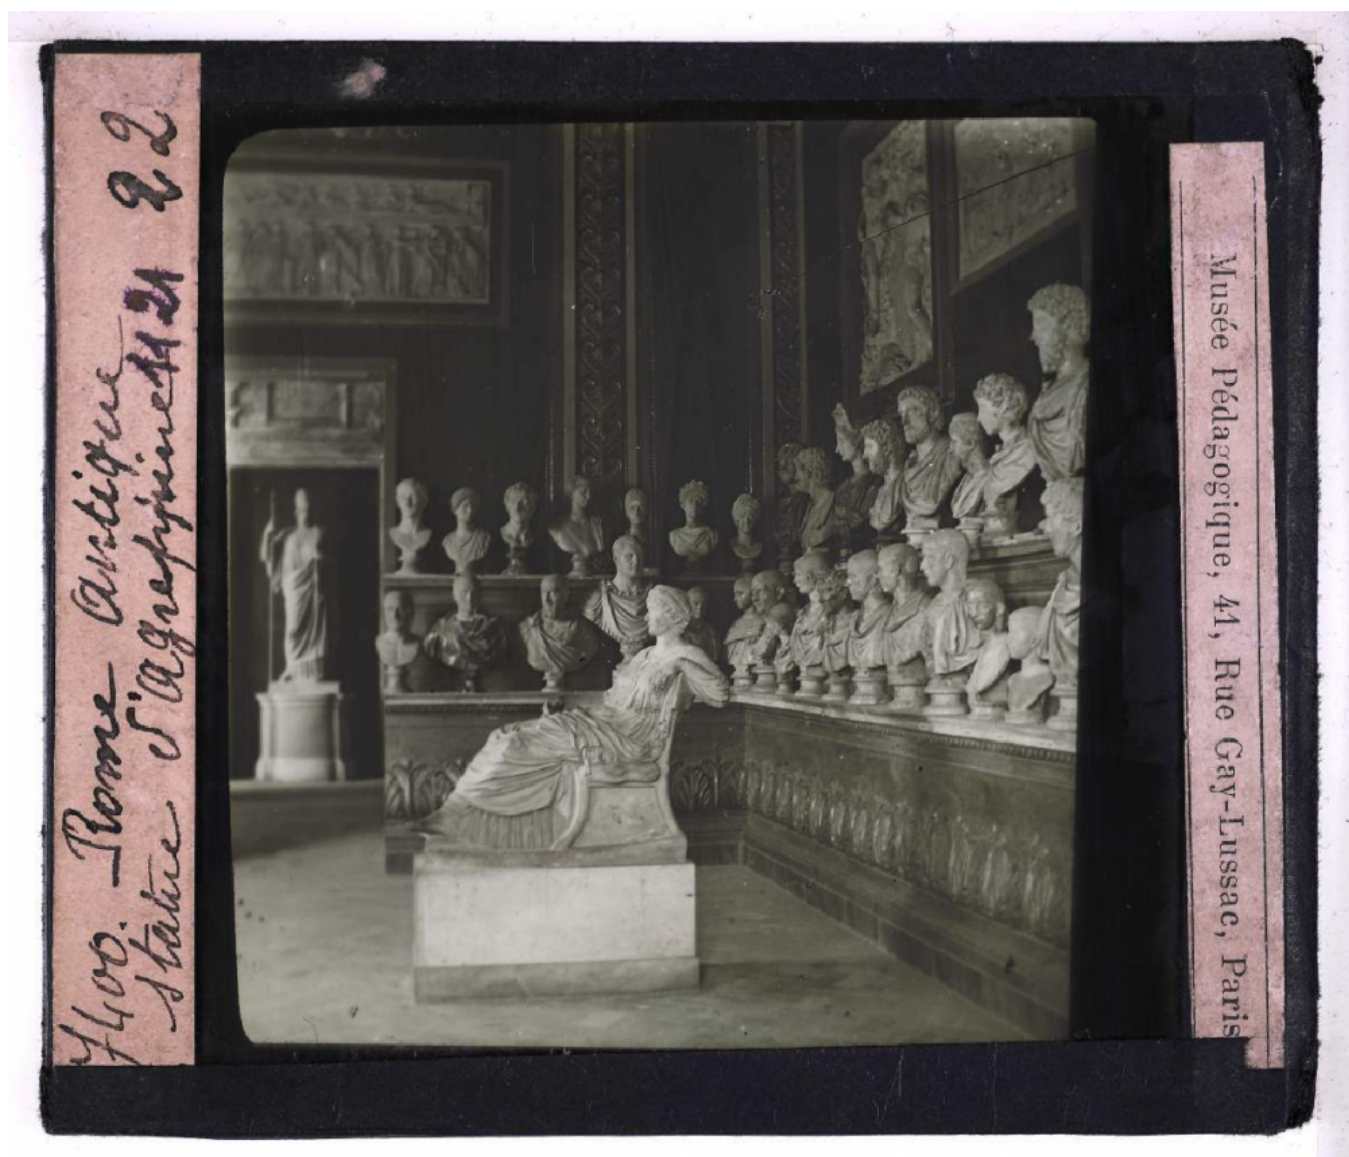 7400. Rome antique 22
Statue d'Agrippine
Musée Pédagogique, 41, Rue Gay-Lussac, Paris